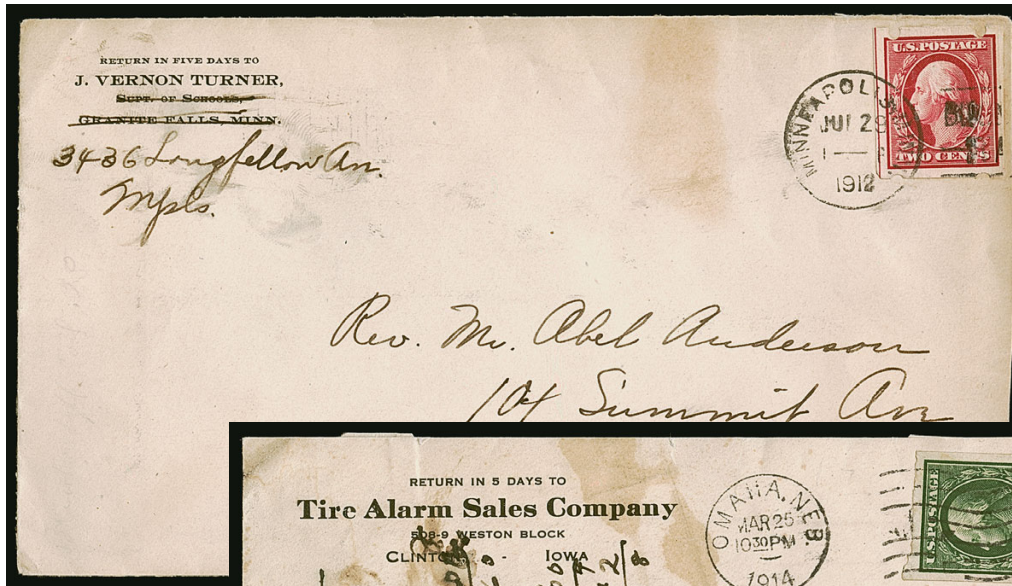 RETURN IN FIVE DAYS TO
J. VERNON TURNER,
SUPT. OF SCHOOLS,
GRANITE FALLS, MINN.
3436 Longfellow Av.
Mpls.
MINNEAPOLIS
1912
U.S. POSTAGE
TWO CENTS
Rev. Mr. Abel Anderson
104 Summit Ave
RETURN IN 5 DAYS TO
Tire Alarm Sales Company
508-9 WESTON BLOCK
CLINTON - IOWA
OMAHA, NEB.
MAR 25
10 30 PM
1914
U.S. POSTAGE